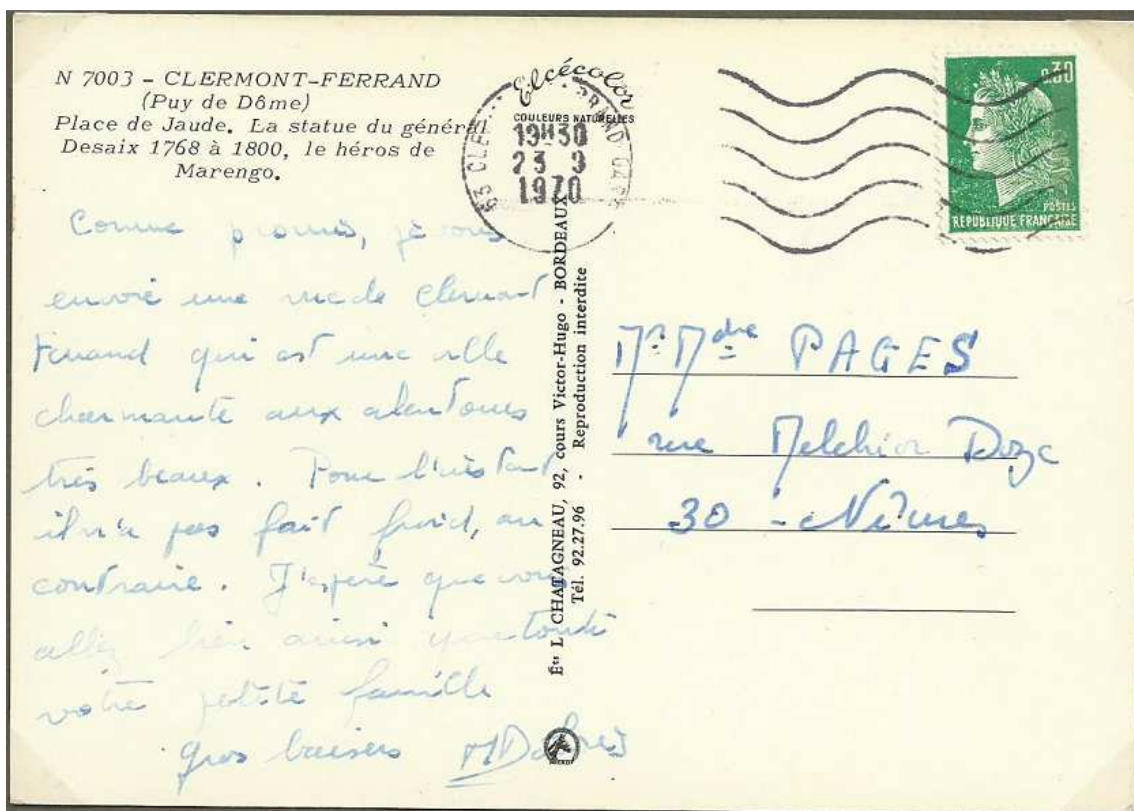 N 7003 - CLERMONT-FERRAND
(Puy de Dôme)
Place de Jaude. La statue du général
Desaix 1768 à 1800, le héros de
Marengo.
Elcécolor
COULEURS NATURELLES
63 CLE
19H30
23 9
1970
0.30
POSTES
REPUBLIQUE FRANÇAISE
Comme promis, je vous
envoie une vue de Clermont
Ferrand qui est une ville
charmante aux alentours
très beaux. Pour l'instant
il n'a pas fait froid, au
contraire. J'espère que vous
allez bien ainsi que toute
votre petite famille
gros baisers
Éts L. CHATAGNEAU, 92, cours Victor-Hugo - BORDEAUX
Tél. 92.27.96 - Reproduction interdite
Mr Mdme PAGES
rue Melchior Doze
30 - Nîmes